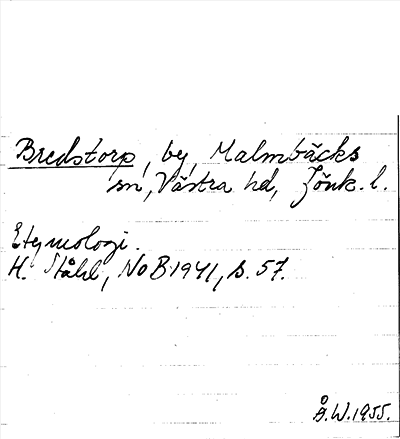 Bredstorp, by, Malmbäcks
sn, Västra hd, Jönk. l.
Etymologi.
H. Ståhl, NoB 1941, s. 57.
Å.W. 1955.